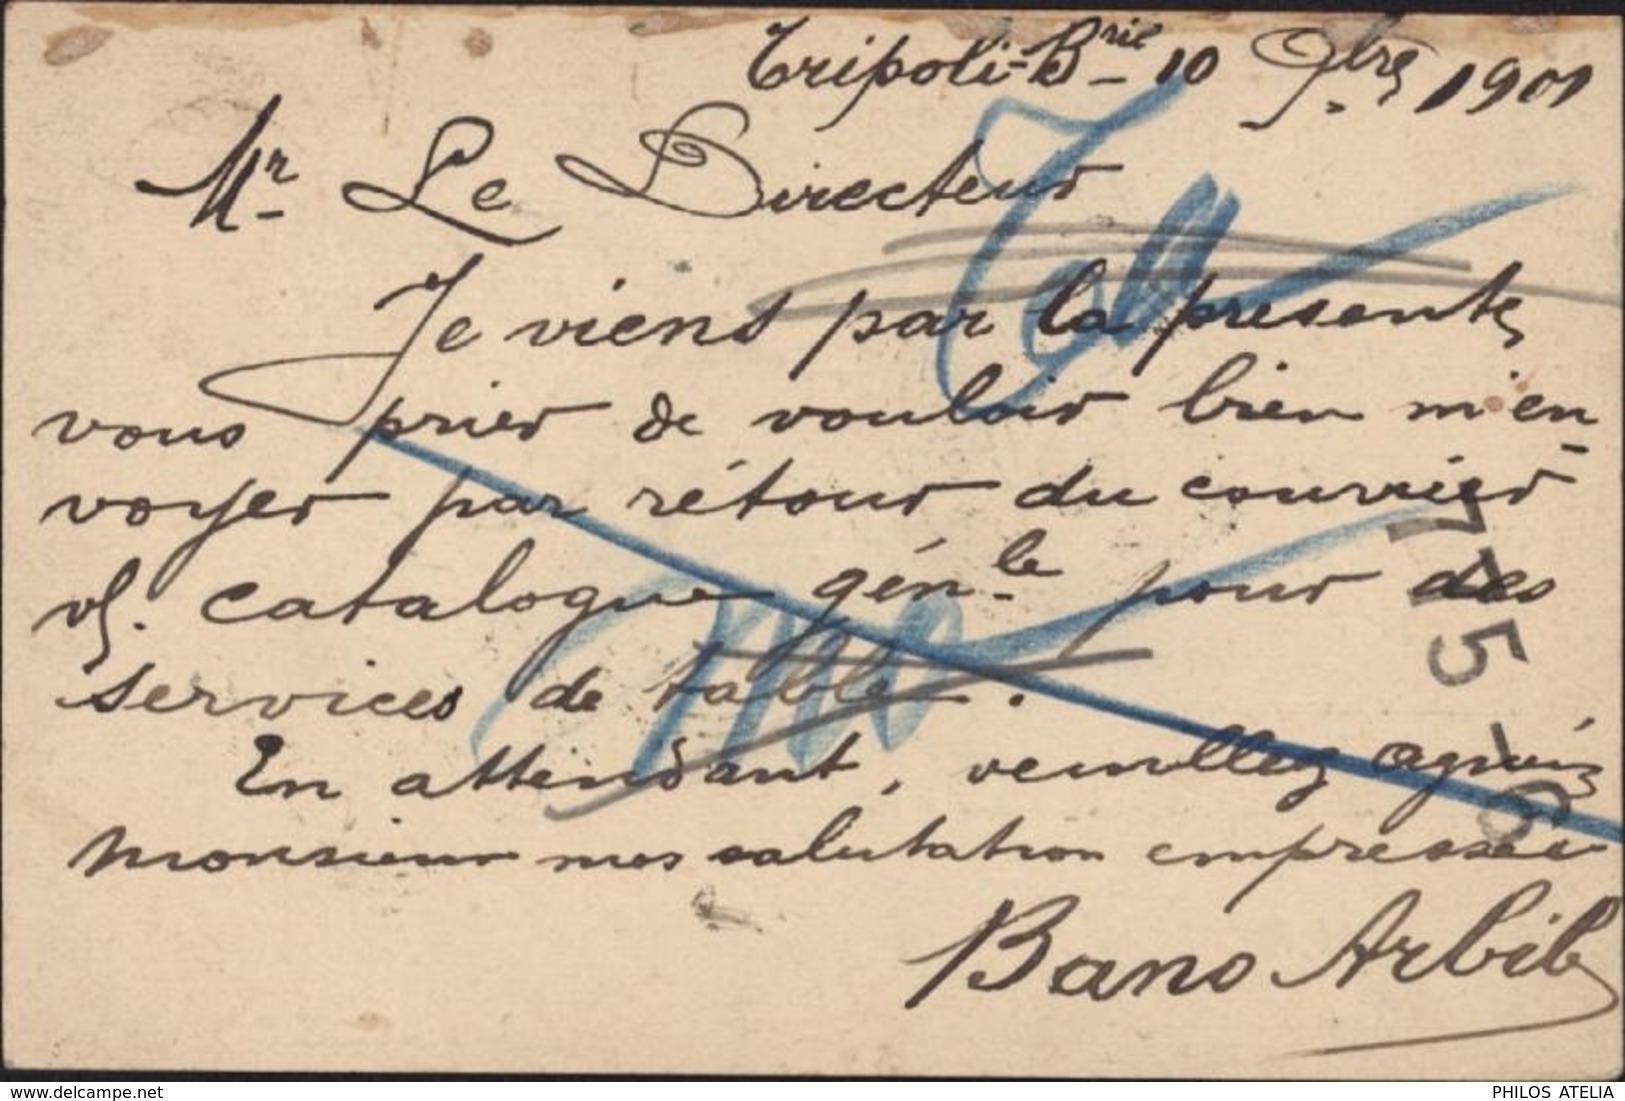 Tripoli-Brie 10 9bre 1901
Mr Le Directeur
Je viens par la presente
vous prier de vouloir bien m'en-
voyer par rétour du courrier
vs. catalogue génle pour des
services de table.
En attendant, veuillez agréez
Monsieur mes salutation empressées
Bano Arbib
775-6
delcampe.net
PHILOS ATELIA